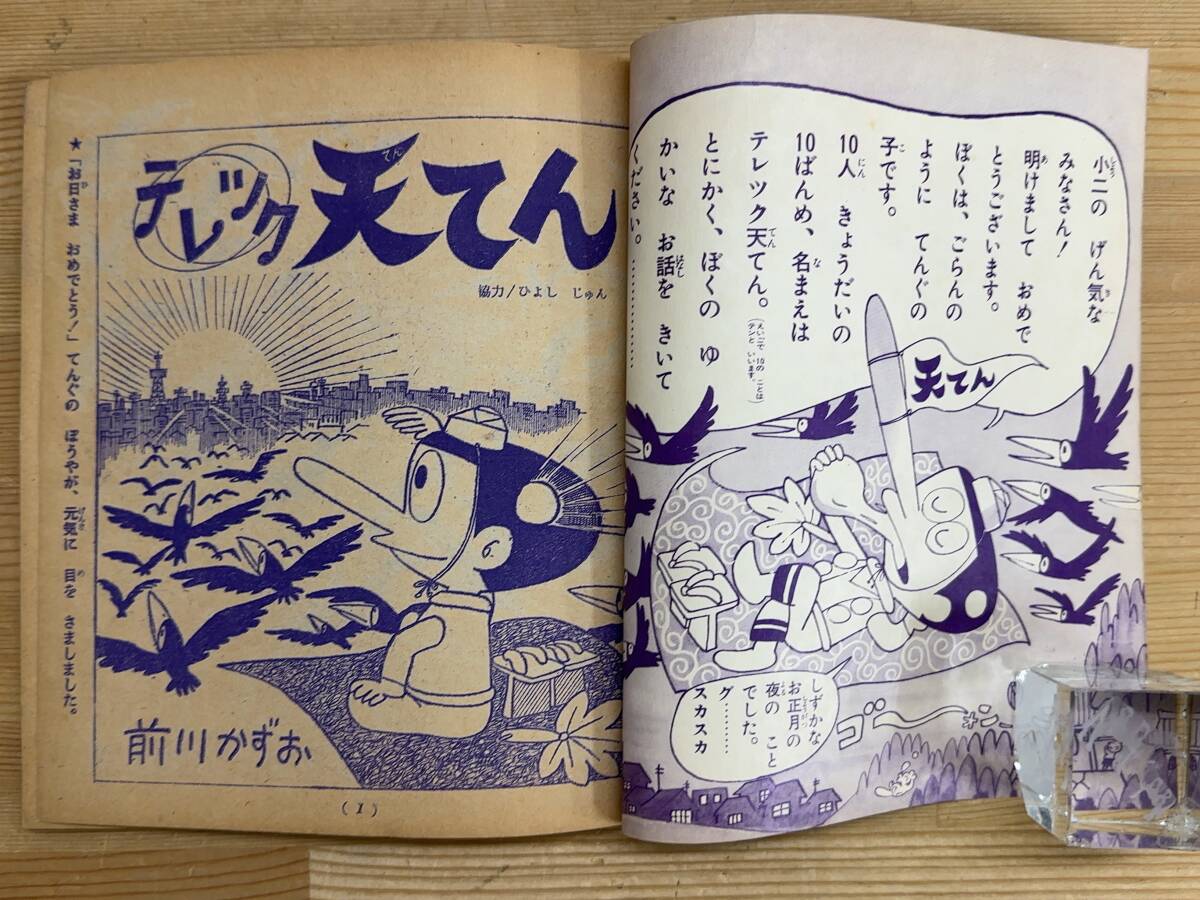 テレツク
天てん
てん
協力/ひよし じゅん
★「お日さま おめでとう!」てんぐの ぼうやが、元気に 目を さましました。
前川かずお
(1)
小二の げん気な
みなさん!
明けまして おめで
とうございます。
ぼくは、ごらんの
ように てんぐの
子です。
10人 きょうだいの
10ばんめ、名まえは
テレツク天てん。
(えいごで 10の ことは
テンと いいます。)
とにかく、ぼくの ゆ
かいな お話を きいて
ください。…………
天てん
しずかな
お正月の
夜の こと
でした。
グ………
スカスカ
ゴー